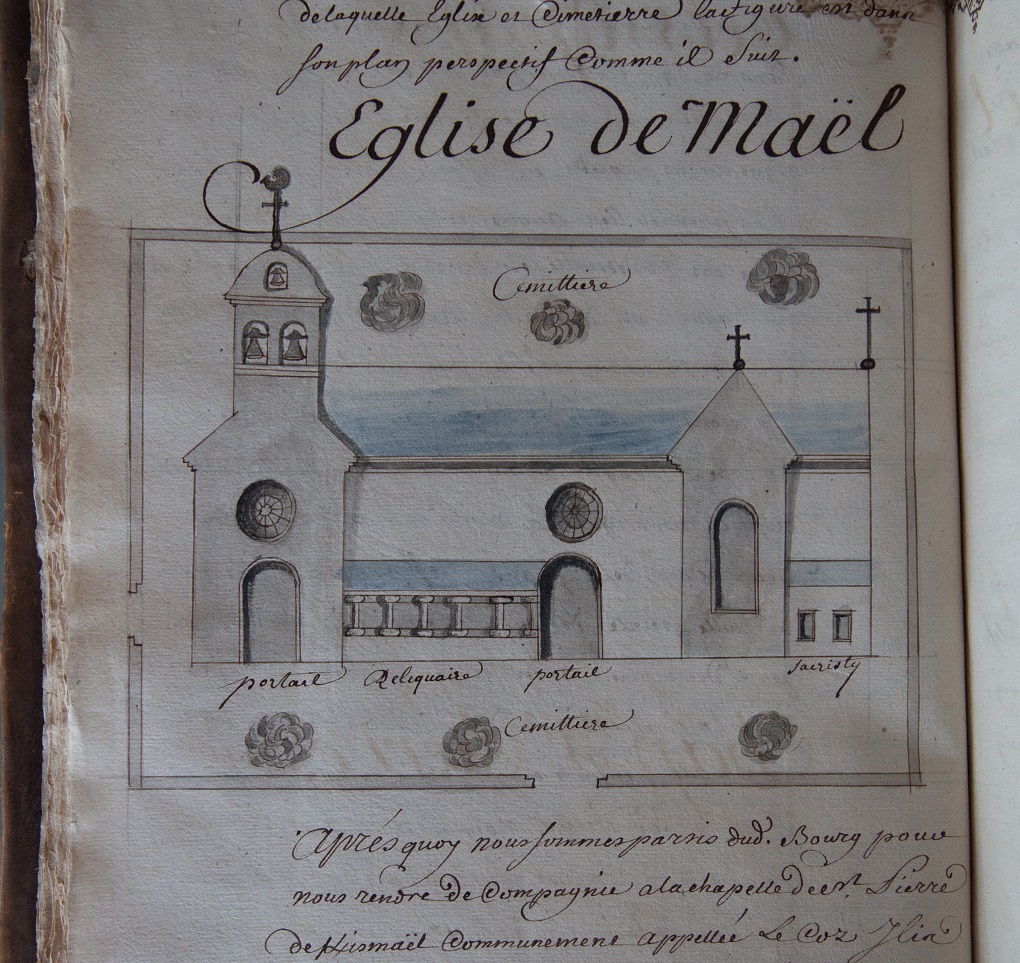 delaquelle Eglise et Cimetierre la figure est dans
son plan perspectif Comme il Suit.
Eglise de Maël
Cemittiere
portail Reliquaire portail sacristy
Cemittiere
Aprés quoy nous sommes partis dud. Bourg pour
nous rendre de Compagnie a la chapelle de st. Pierre
de Kismaël Communement appellée Le Coz Ilis